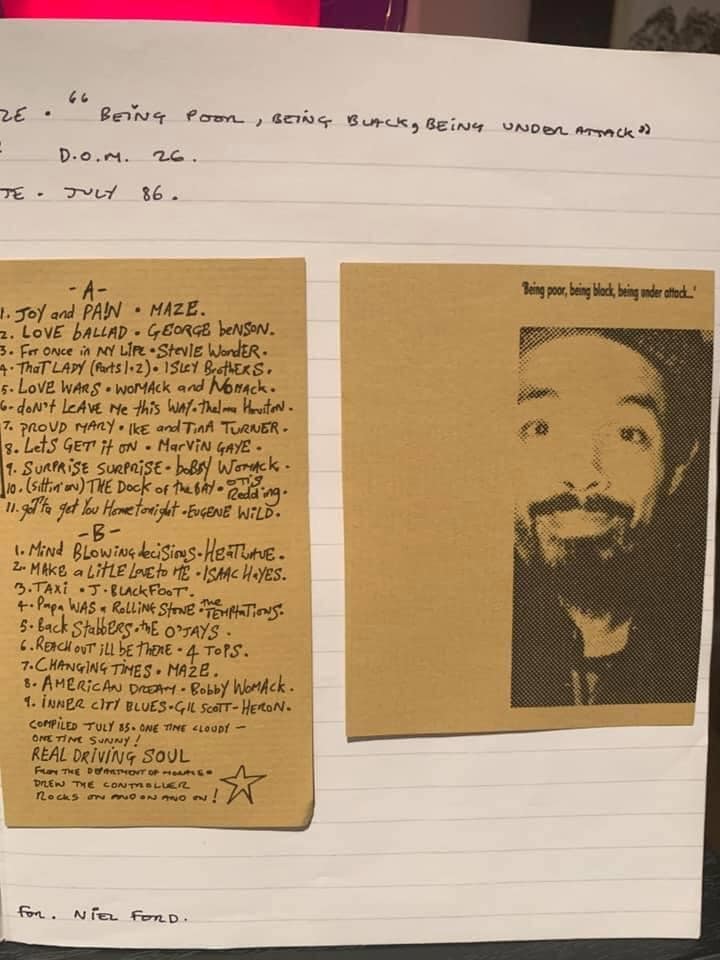 ZE . "BEING POOR, BEING BLACK, BEING UNDER ATTACK"
D.O.M. 26.
TE . JULY 86.
-A-
1. JOY and PAIN . MAZE.
2. LOVE bALLAD . GEORGE beNSON.
3. For ONCE in MY LIFE . Stevie Wonder.
4. ThaT LADY (Parts 1+2) . ISLEY BrotHERS.
5. LOVE WARS . WOMACK and WOMACK.
6. don't LEAVE Me this WAY . Thelma Houston.
7. PROUD MARY . IKE and TINA TURNER.
8. LETS GET it ON . MARVIN GAYE.
9. SURPRISE SURPRISE . bobby WOMACK.
10. (sittin' on) THE Dock of the BAY . OTIS Redding.
11. gotta get You Home tonight . EUGENE WILD.
-B-
1. MIND BLOWING decisions . HEATWAVE.
2. MAKE a LITLE LOVE to ME . ISAAC HAYES.
3. TAXI . J. BLACKFOOT.
4. Papa WAS a ROLLING STONE . the TEMPTATIONS.
5. Back Stabbers . the O'JAYS.
6. REACH OUT ill BE THERE . 4 TOPS.
7. CHANGING TIMES . MAZE.
8. AMERICAN DREAM . Bobby WOMACK.
9. INNER CITY BLUES . GIL SCOTT-HERON.
COMPILED JULY 85. ONE TIME CLOUDY -
ONE TIME SUNNY!
REAL DRIVING SOUL
FROM THE DEPARTMENT OF
DREW THE CONTROLLER
ROCKS ON AND ON AND ON!
'Being poor, being black, being under attack...'
For. NIEL FORD.